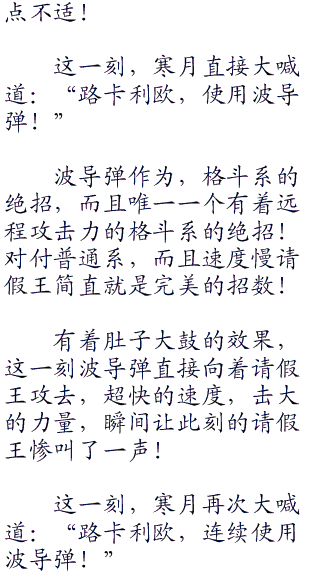 点不适！
这一刻，寒月直接大喊
道：“路卡利欧，使用波导
弹！”
波导弹作为，格斗系的
绝招，而且唯一一个有着远
程攻击力的格斗系的绝招！
对付普通系，而且速度慢请
假王简直就是完美的招数！
有着肚子大鼓的效果，
这一刻波导弹直接向着请假
王攻去，超快的速度，击大
的力量，瞬间让此刻的请假
王惨叫了一声！
这一刻，寒月再次大喊
道：“路卡利欧，连续使用
波导弹！”